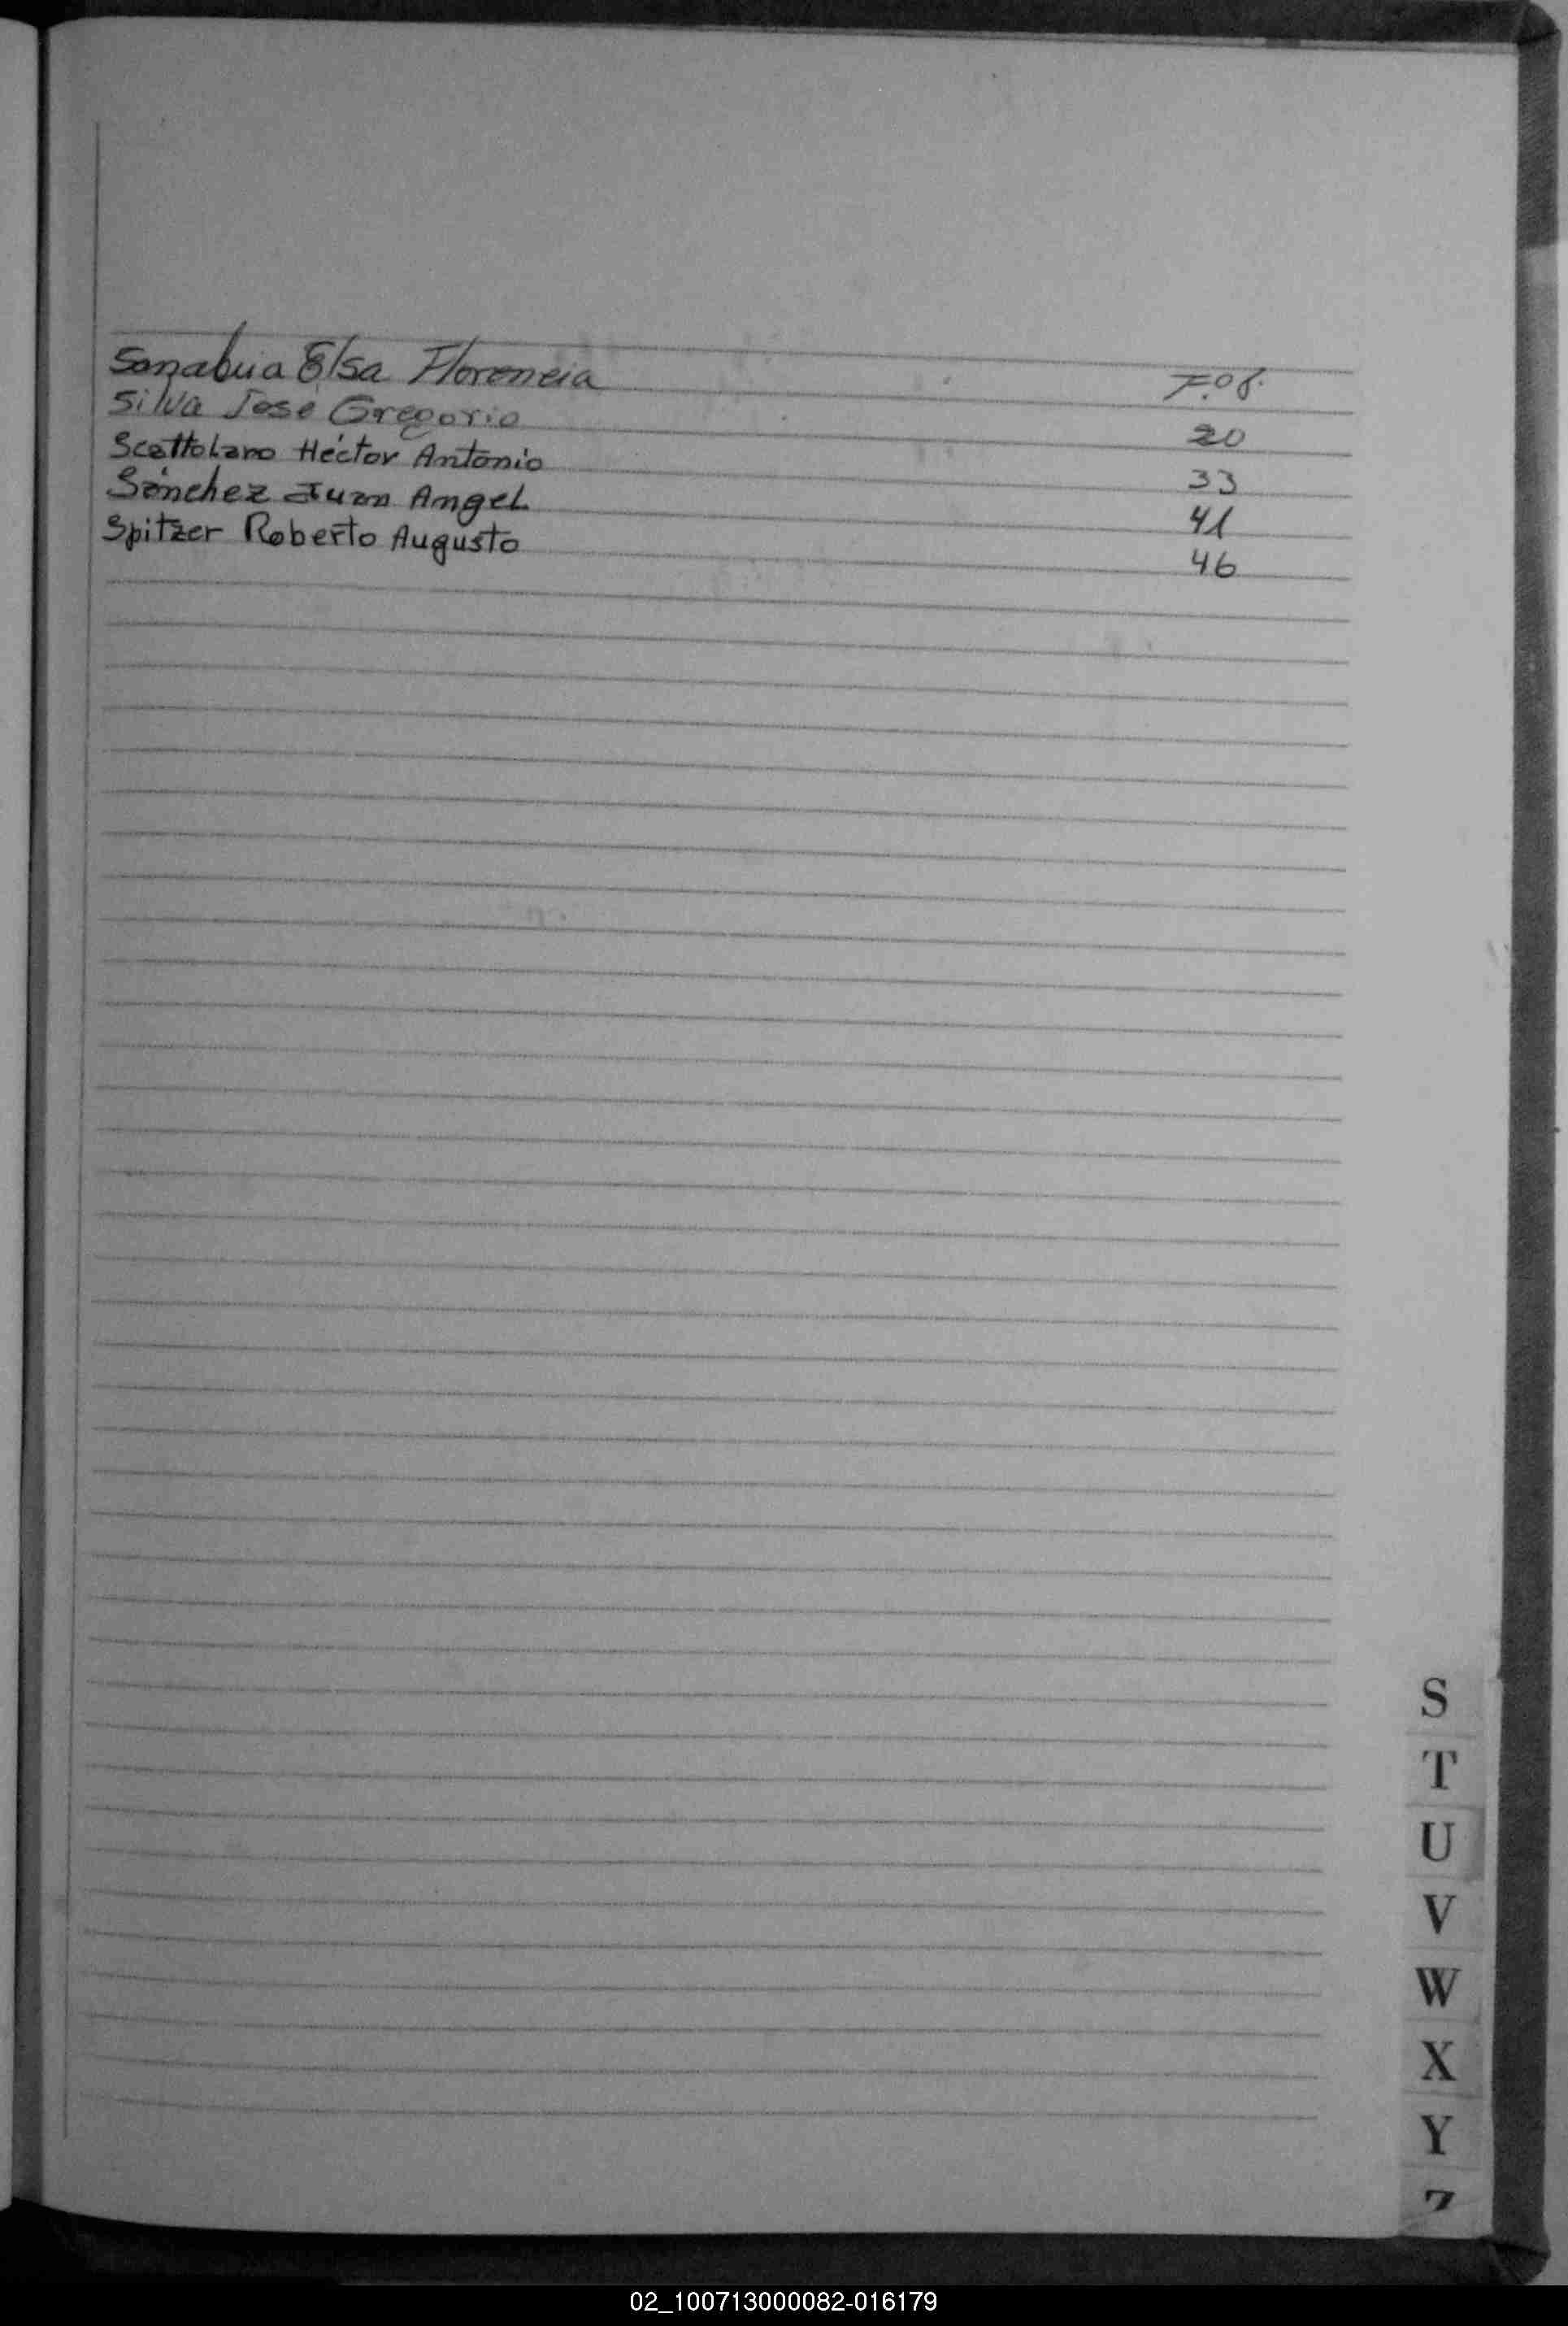 Sanabria Elsa Florencia F.º 8.
Silva José Gregorio 20
Scattolaro Héctor Antonio 33
Sánchez Juan Angel 41
Spitzer Roberto Augusto 46
S
T
U
V
W
X
Y
Z
02_100713000082-016179